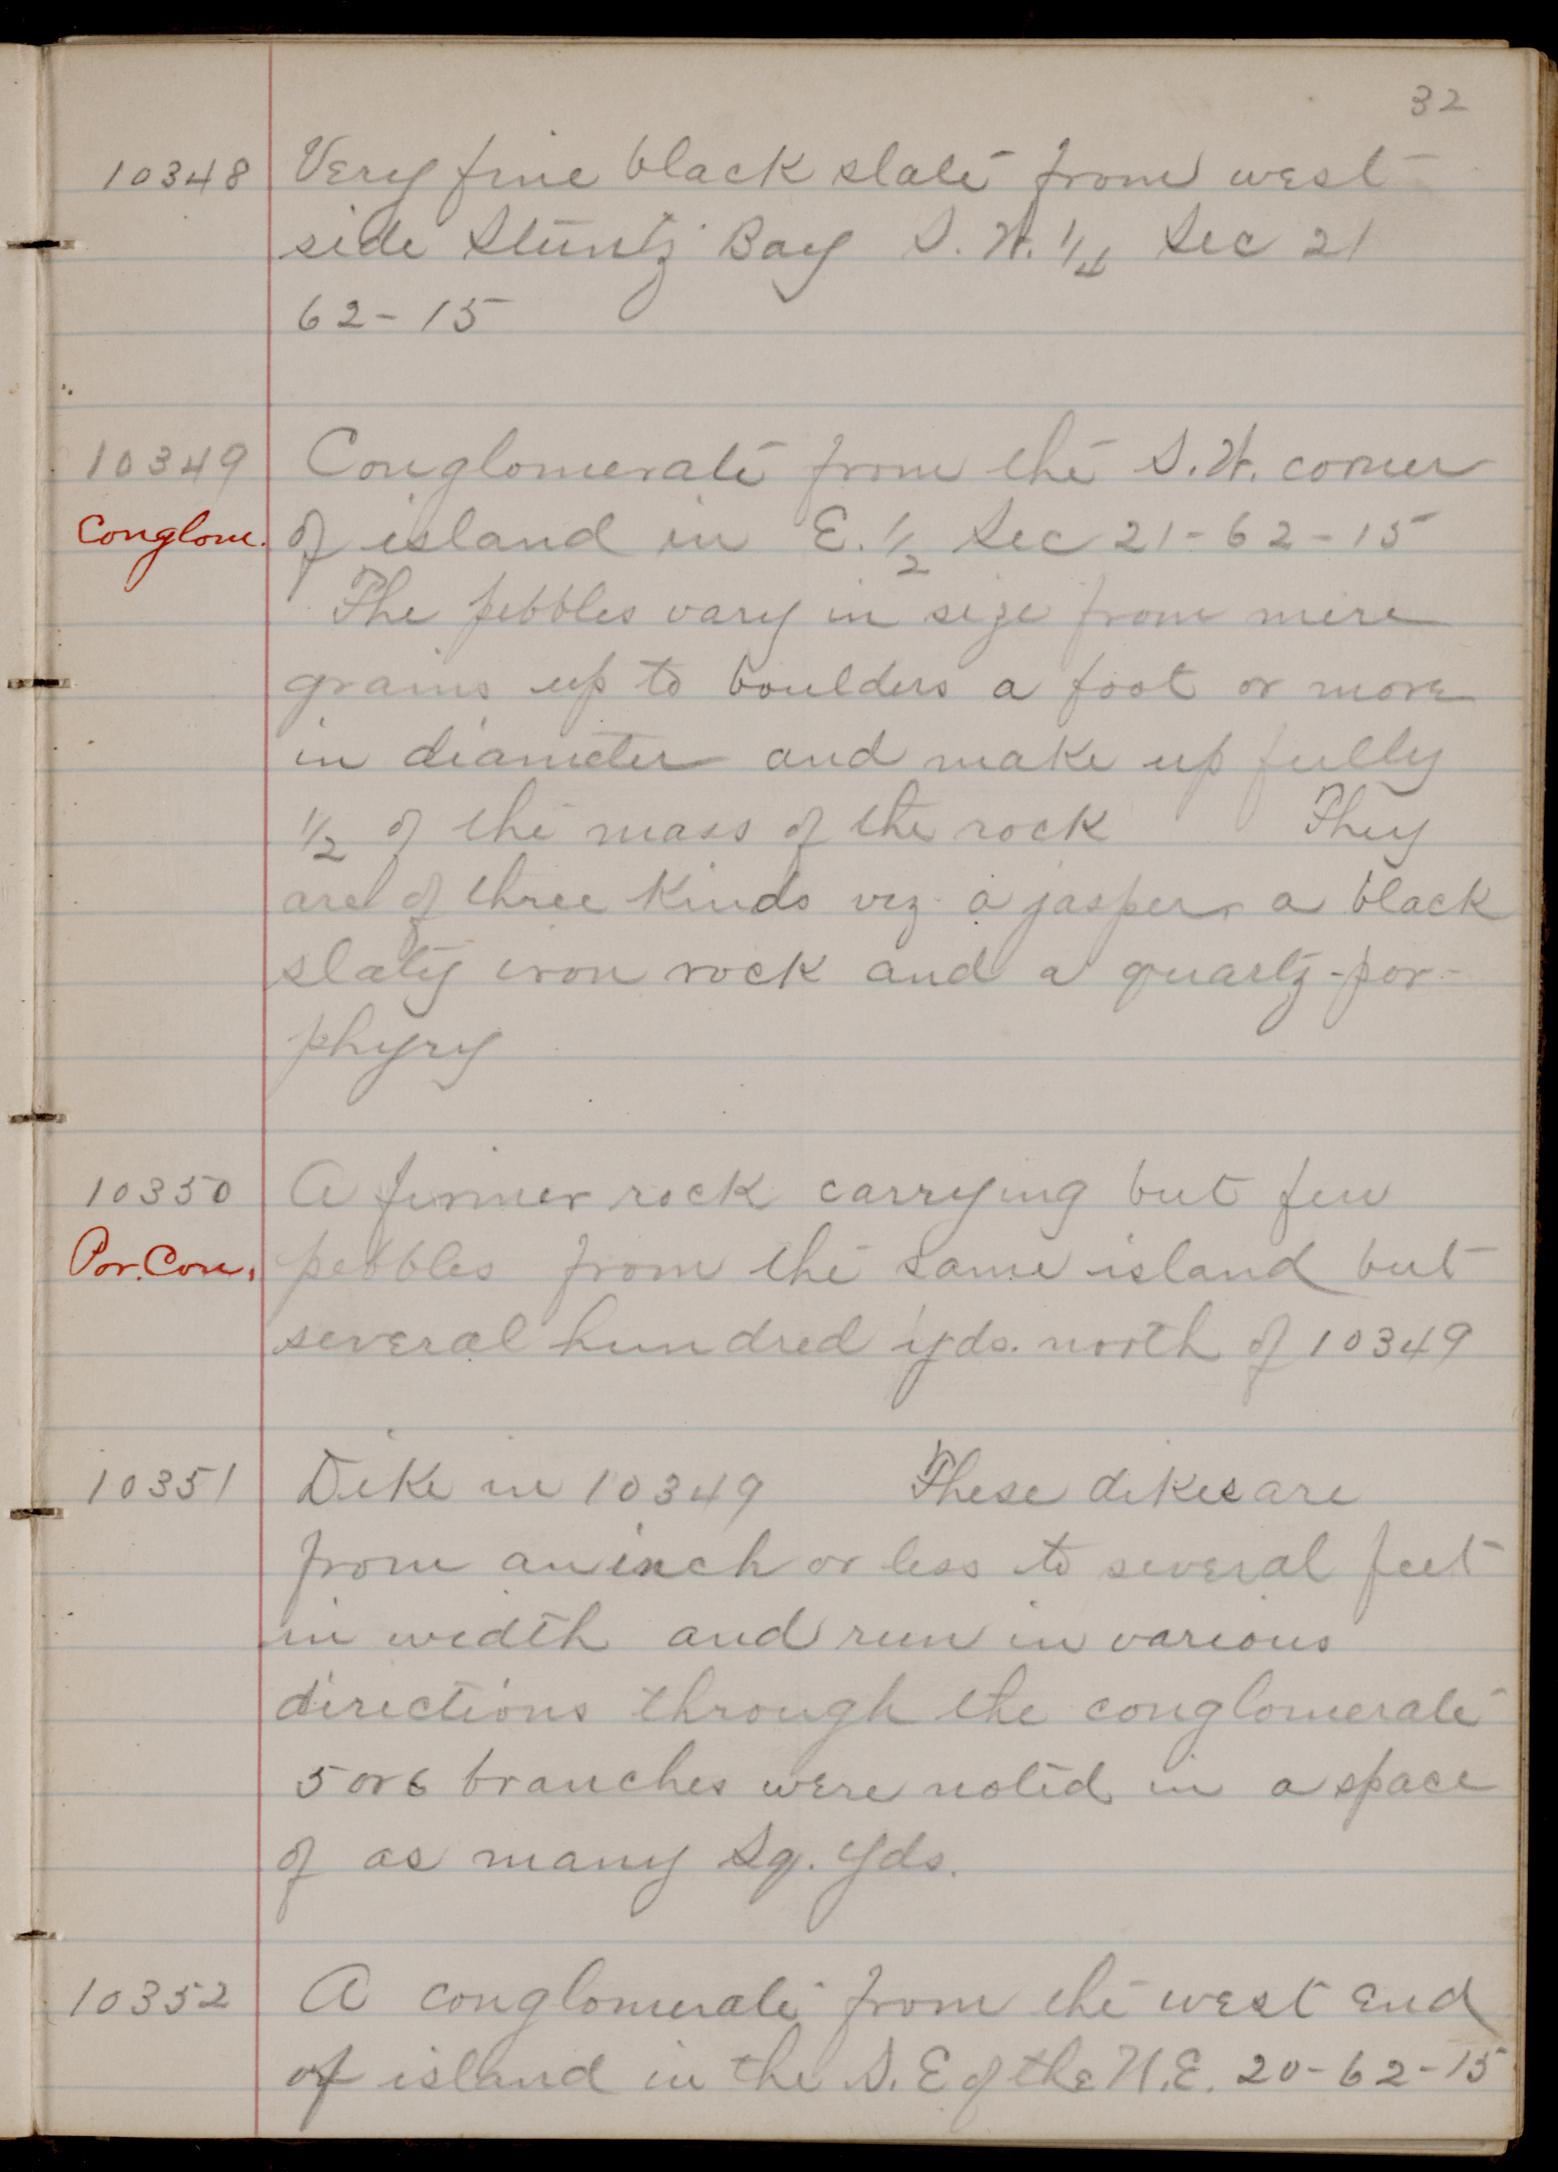 32
10348 Very fine black slate from west
side Stuntz Bay S.W. 1/4 Sec 21
62-15
10349 Conglomerate from the S.W. corner
Conglom. of island in E. 1/2 Sec 21-62-15
The pebbles vary in size from mere
grains up to boulders a foot or more
in diameter and make up fully
1/2 of the mass of the rock They
are of three kinds viz. a jasper a black
slaty iron rock and a quartz-por-
phyry
10350 A firmer rock carrying but few
Por. Con. pebbles from the same island but
several hundred yds. north of 10349
10351 Dike in 10349 These dikes are
from an inch or less to several feet
in width and run in various
directions through the conglomerate
5 or 6 branches were noted in a space
of as many Sq. Yds.
10352 A conglomerate from the west end
of island in the S.E of the N.E. 20-62-15